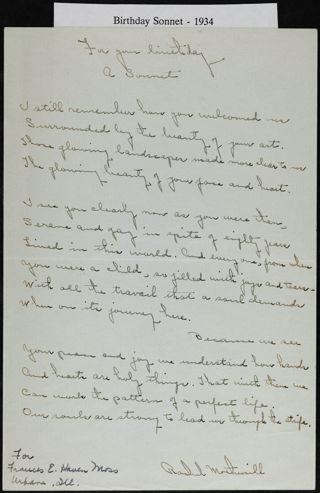 Birthday Sonnet - 1934
For your birthday
A Sonnet
I still remember how you welcomed us
Surrounded by the beauty of your art.
Those glowing landscapes made more clear to us
The glowing beauty of your face and heart.
I see you clearly now as you were then,
Serene and gay in spite of eighty years
Lived in this world. And everyone, from when
You were a child, so filled with joys and tears
With all the travail that a soul demands
When on its journey here.
Because we see
Your peace and joy we understand how hands
And hearts are holy things. That with them we
Can work the pattern of a perfect life.
Our souls are strong to lead us through the strife.
For
Frances E. Haven Moss
Urbana, Ill.